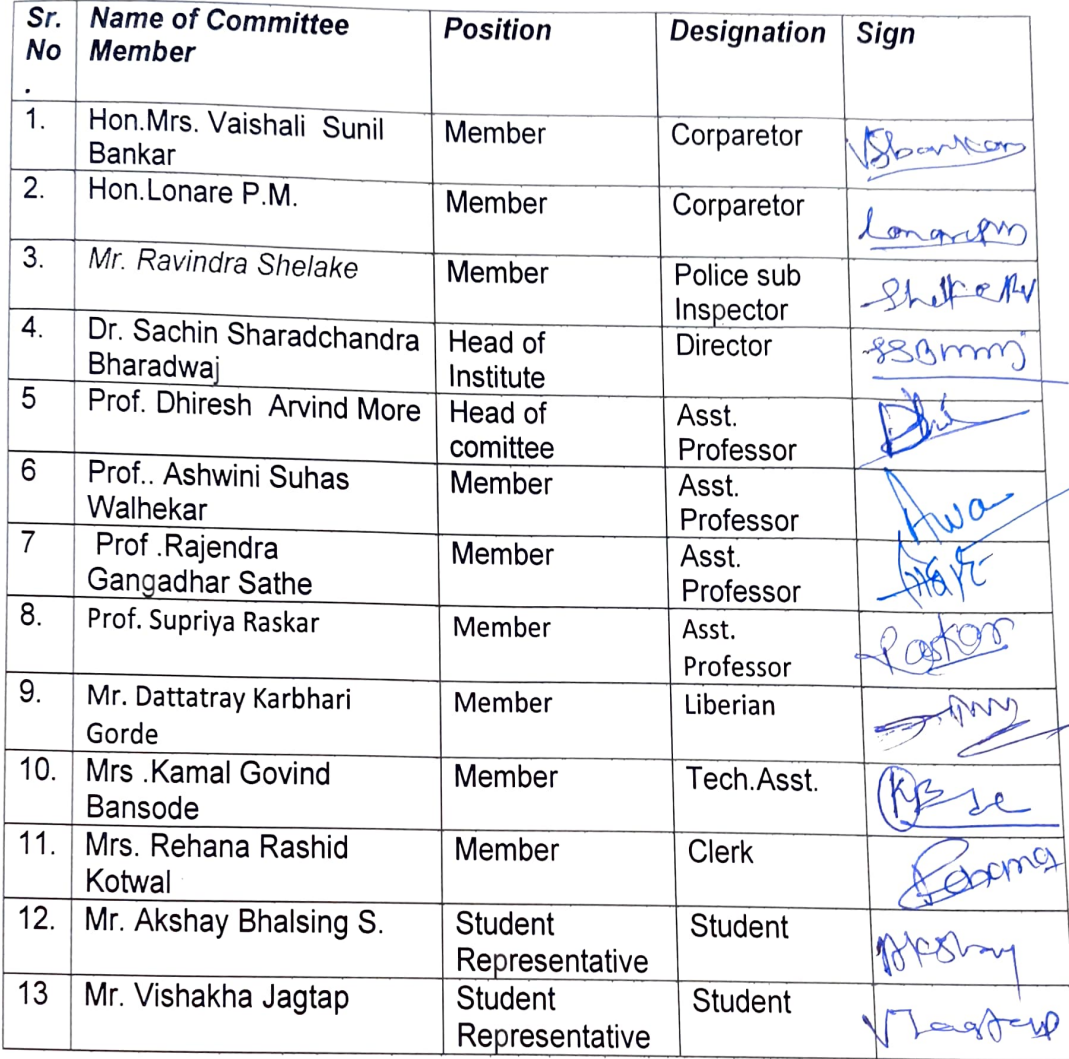 Sr. No . Name of Committee Member Position Designation Sign
1. Hon.Mrs. Vaishali Sunil Bankar Member Corparetor VSbankar
2. Hon.Lonare P.M. Member Corparetor
3. Mr. Ravindra Shelake Member Police sub Inspector
4. Dr. Sachin Sharadchandra Bharadwaj Head of Institute Director
5 Prof. Dhiresh Arvind More Head of comittee Asst. Professor
6 Prof.. Ashwini Suhas Walhekar Member Asst. Professor
7 Prof .Rajendra Gangadhar Sathe Member Asst. Professor
8. Prof. Supriya Raskar Member Asst. Professor Raskar
9. Mr. Dattatray Karbhari Gorde Member Liberian
10. Mrs .Kamal Govind Bansode Member Tech.Asst.
11. Mrs. Rehana Rashid Kotwal Member Clerk
12. Mr. Akshay Bhalsing S. Student Representative Student Akshay
13 Mr. Vishakha Jagtap Student Representative Student VJagtap